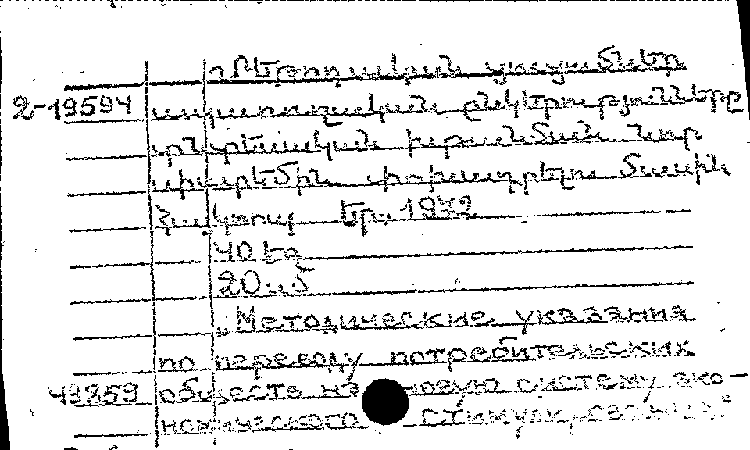 Մեթոդական ցուցումներ
2-19594 սպառողական ընկերությունները
տնտեսական խթանման նոր
սիստեմին փոխադրելու մասին
Հայկոոպ Եր., 1972
40 էջ
20 մ 5
„Методические указания
по переводу потребительских
49859 обществ на новую систему эко-
номического стимулирования"